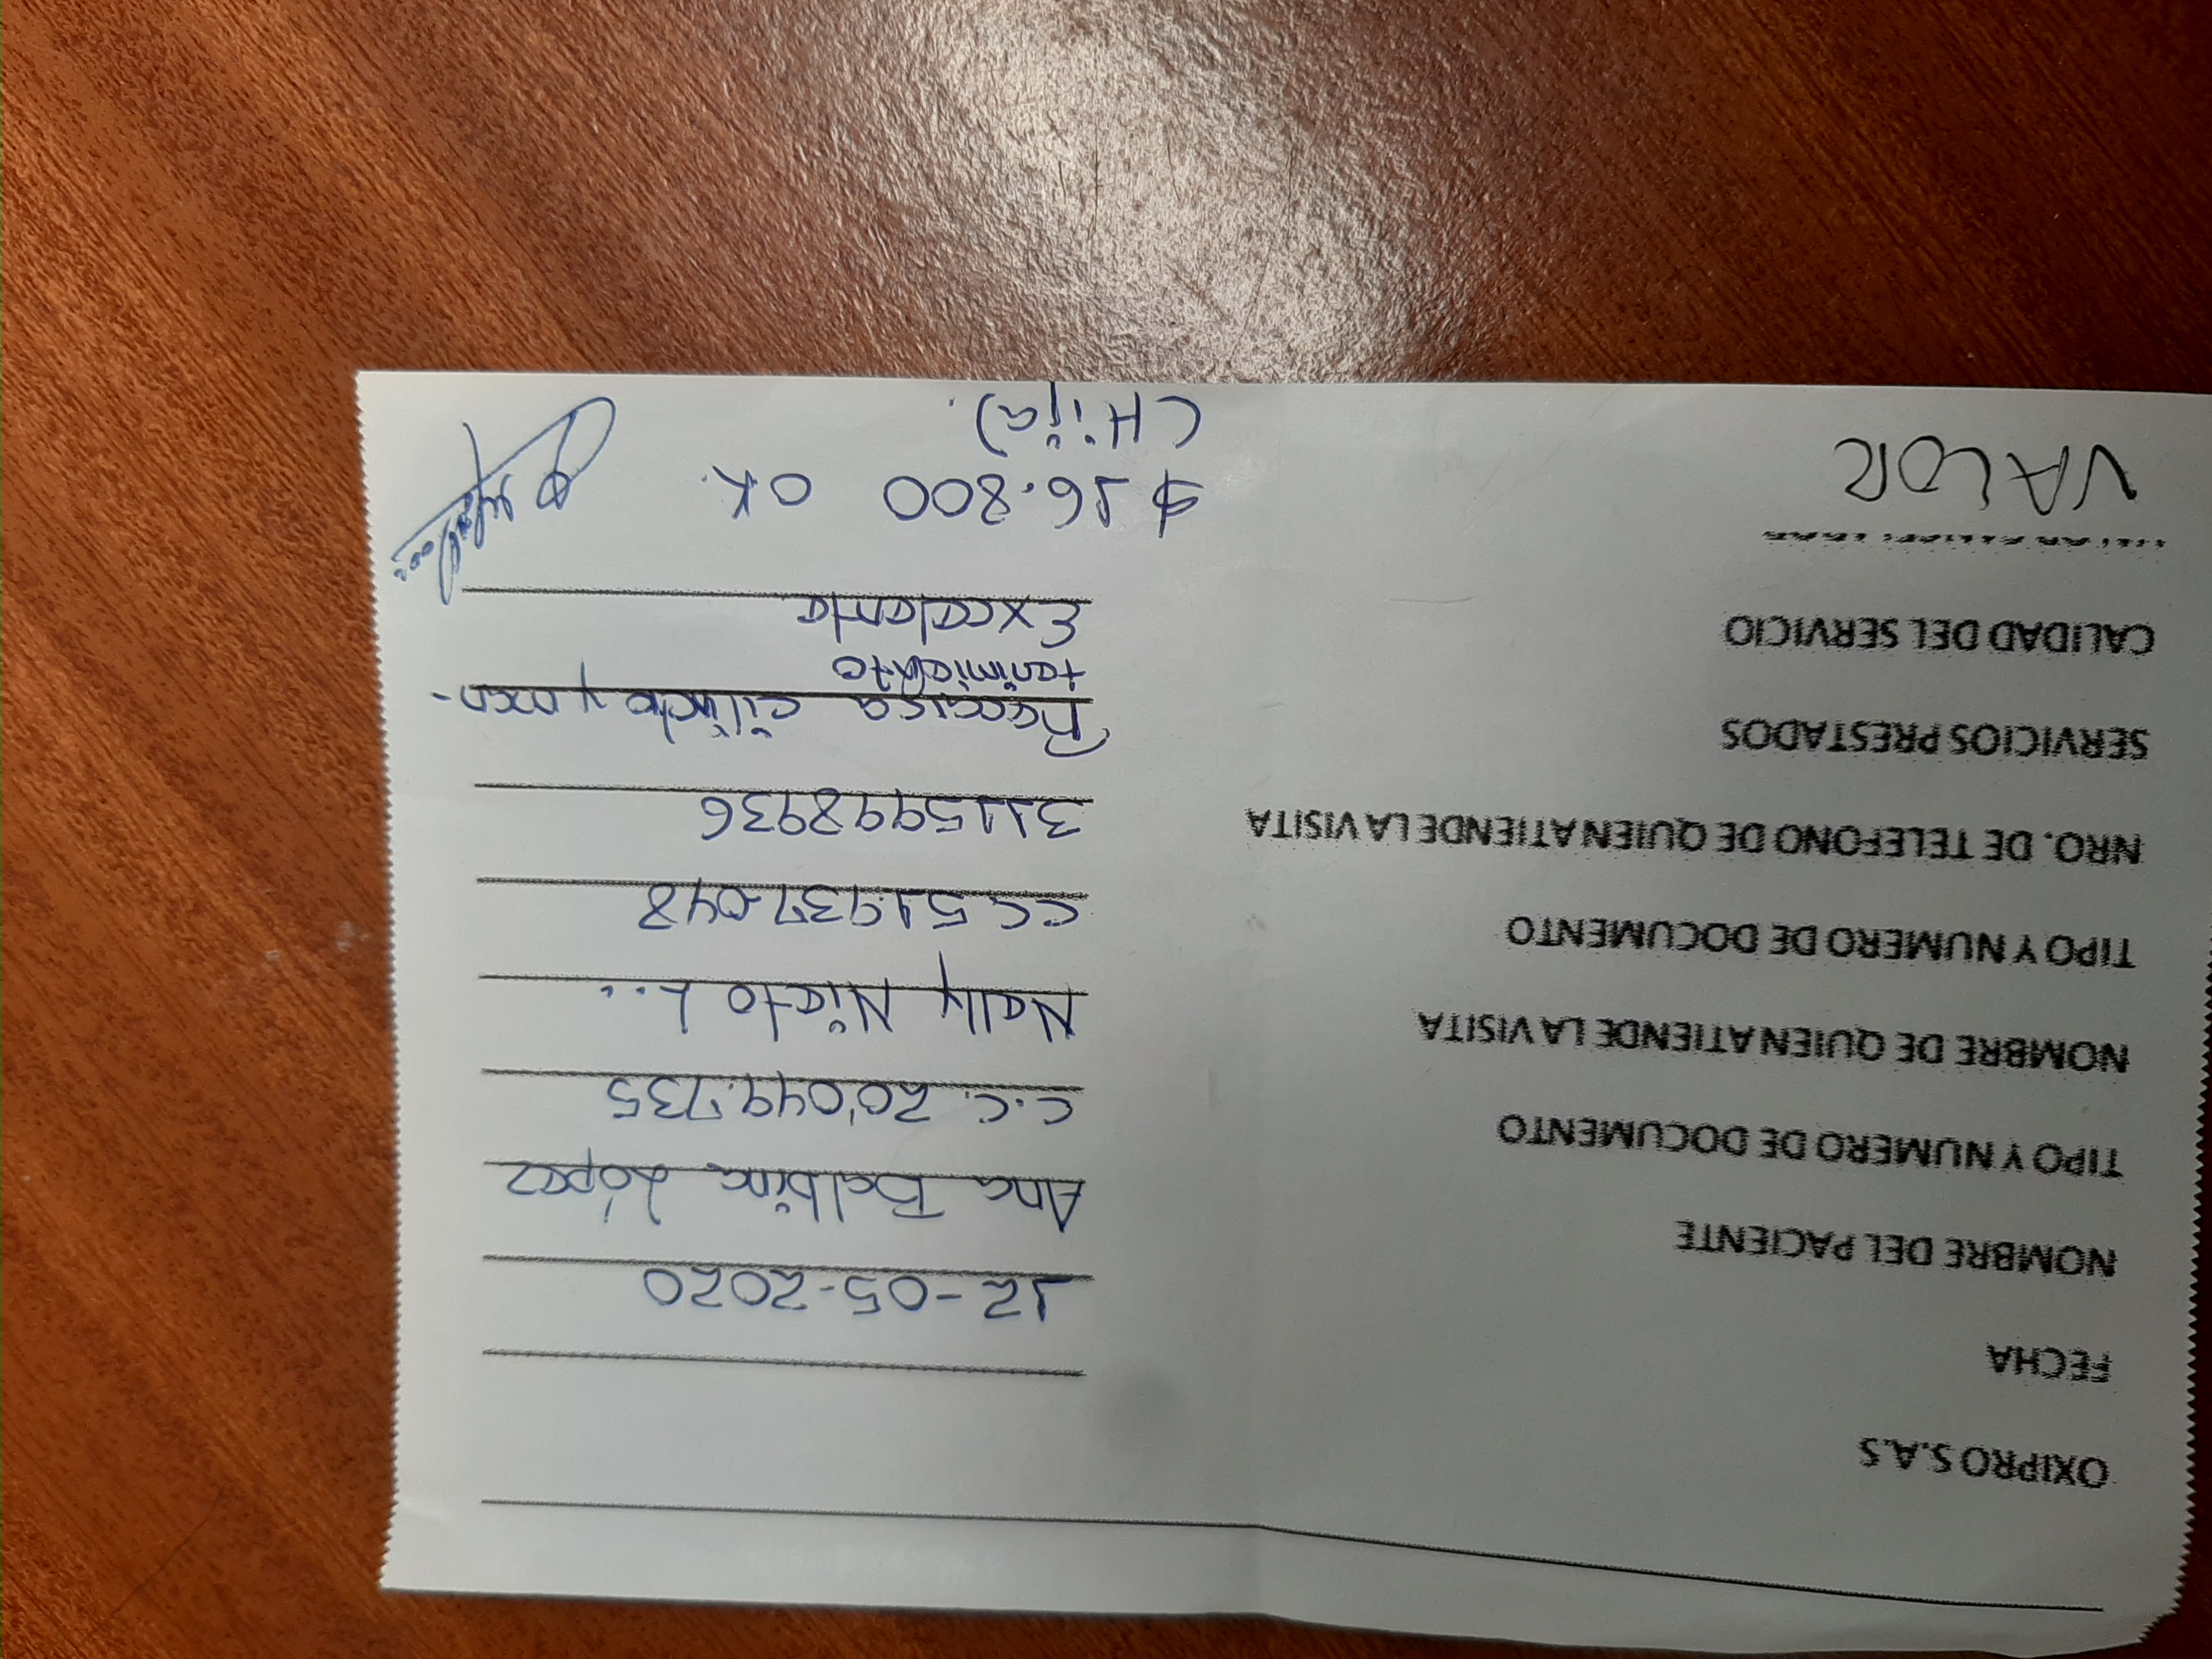 OXIPRO S.A.S
FECHA 12-05-2020
NOMBRE DEL PACIENTE Ana Balbina López
TIPO Y NUMERO DE DOCUMENTO C.C. 20'049.735
NOMBRE DE QUIEN ATIENDE LA VISITA Nelly Nieto L...
TIPO Y NUMERO DE DOCUMENTO CC 51.937.048
NRO. DE TELEFONO DE QUIEN ATIENDE LA VISITA 3115998936
SERVICIOS PRESTADOS Recarga cilindro y man-
tenimiento
CALIDAD DEL SERVICIO Excelente
VALOR $ 16.800 OK.
(Hija).